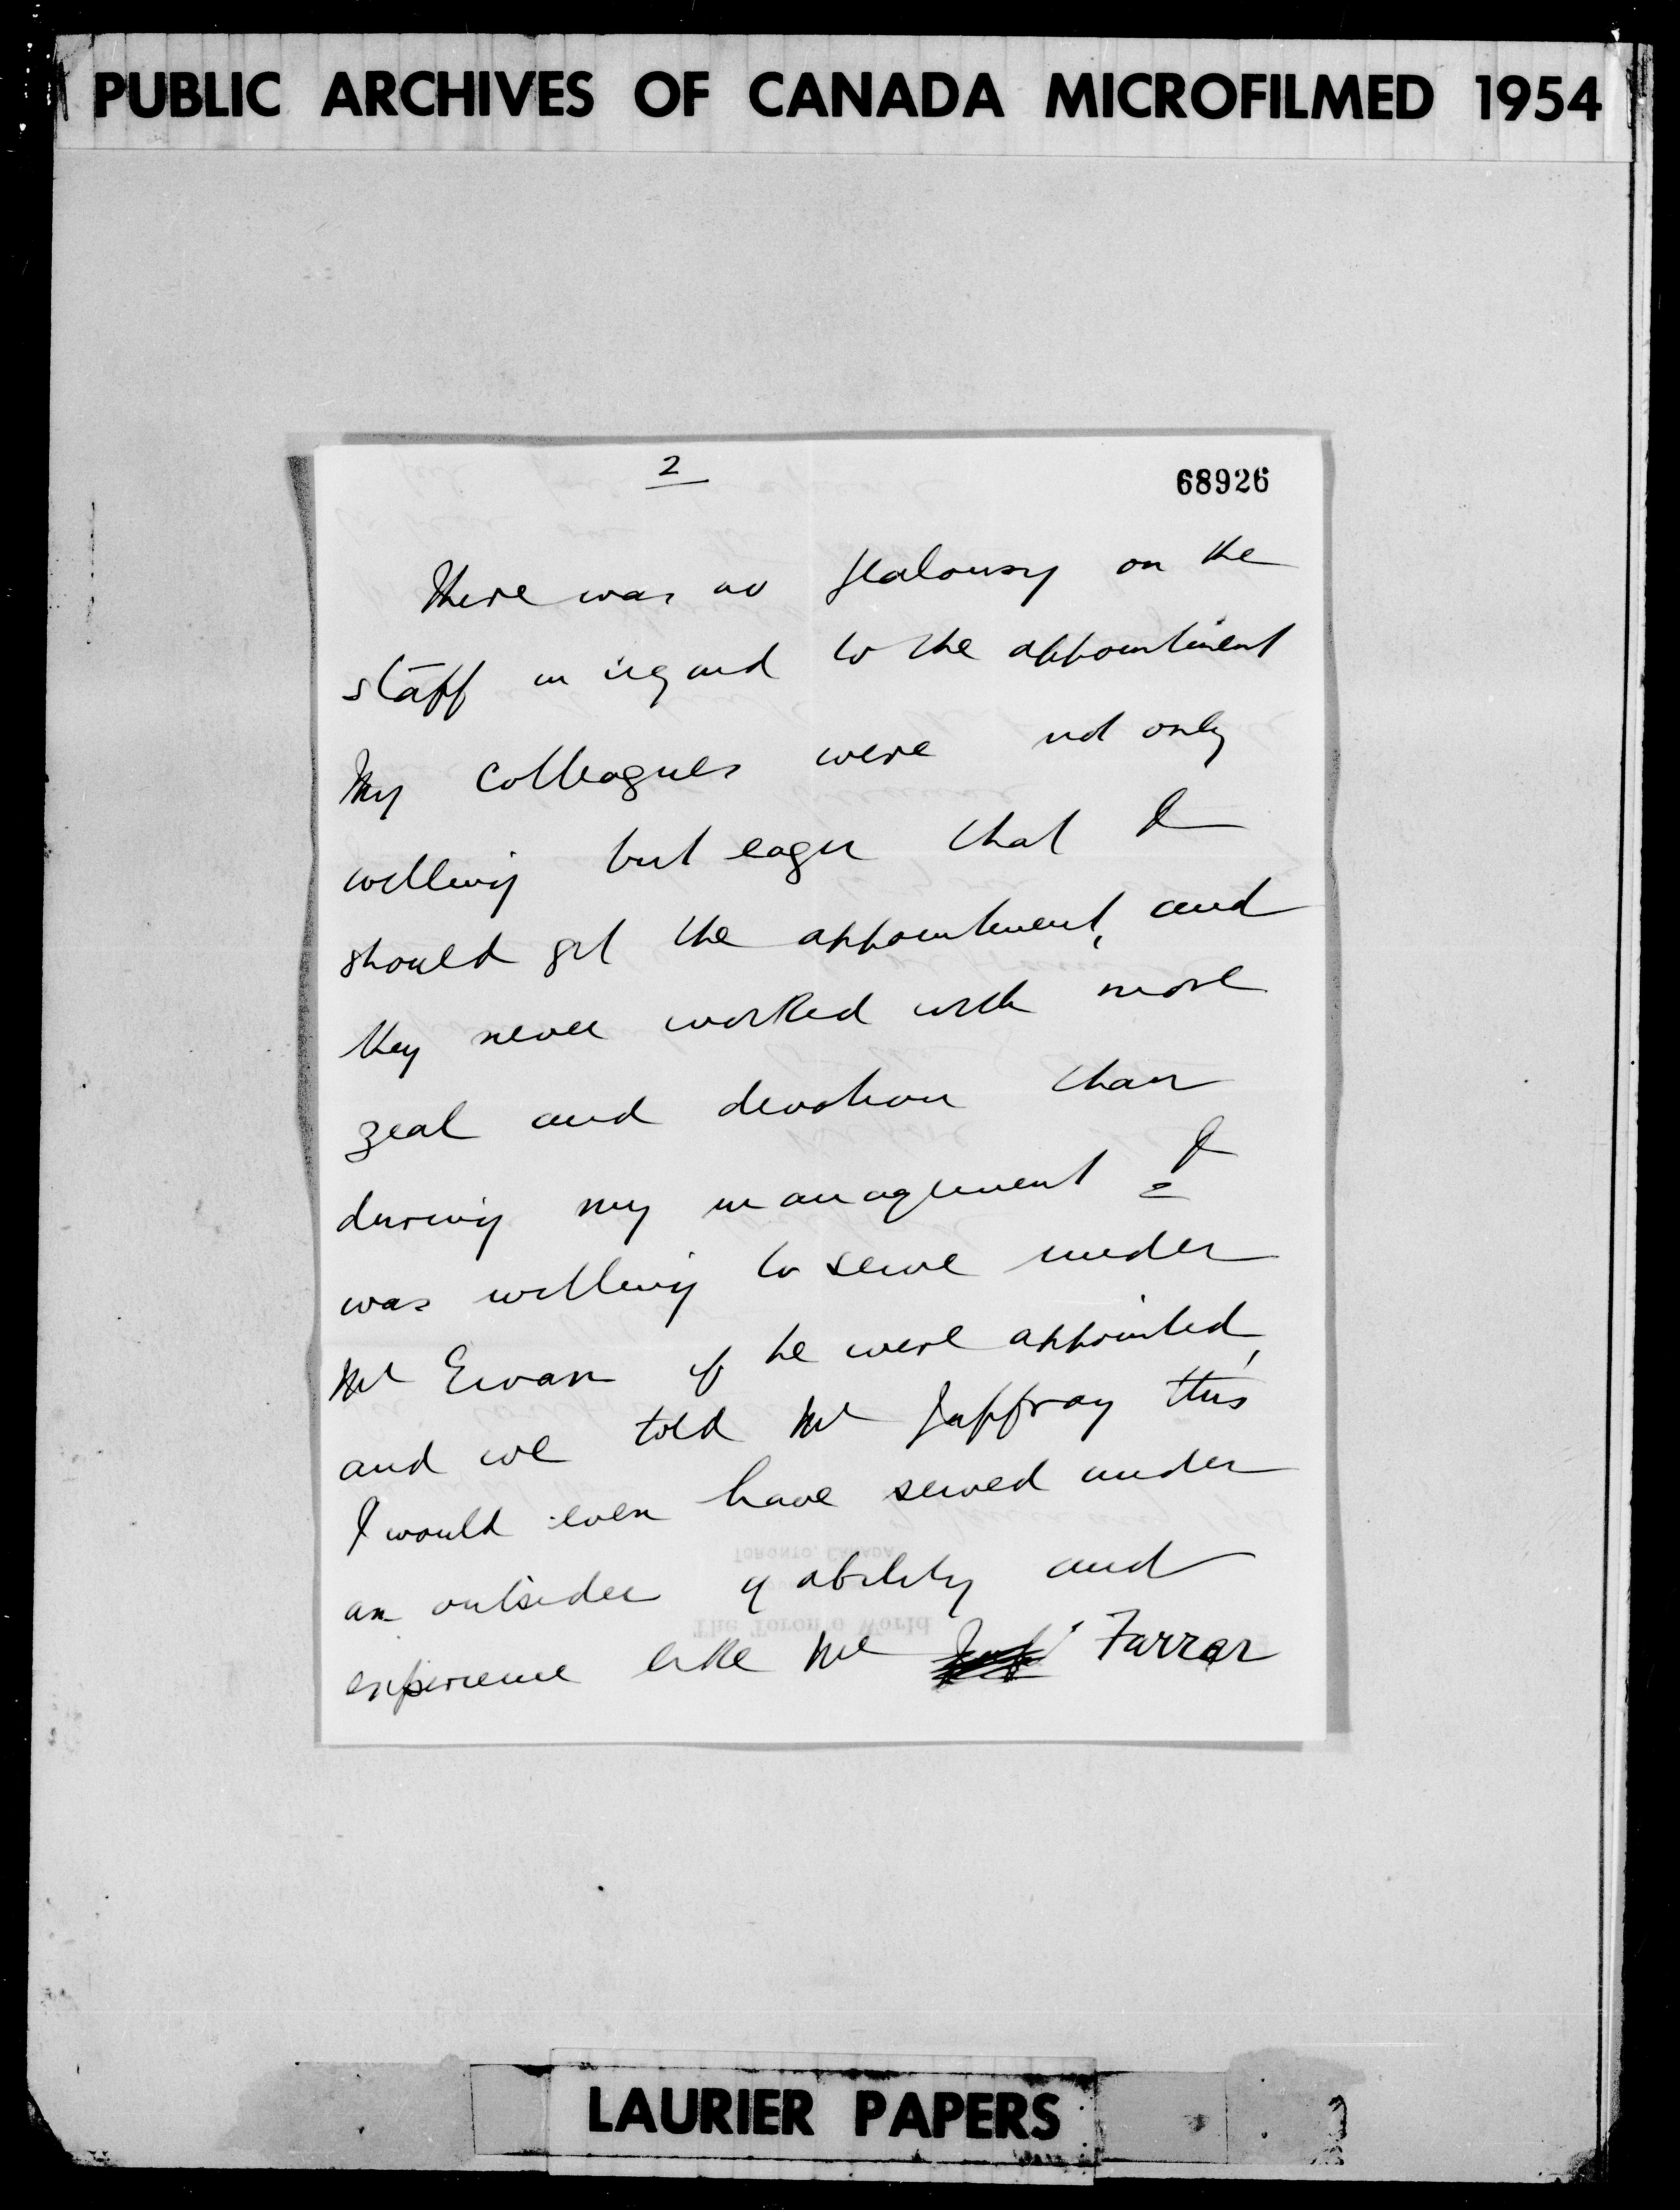 PUBLIC ARCHIVES OF CANADA MICROFILMED 1954
2
68926
There was no jealousy on the
staff in regard to the appointment
My colleagues were not only
willing but eager that I
should get the appointment, and
they never worked with more
zeal and devotion than
during my management I
was willing to serve under
Mr Ewan if he were appointed,
and we told Mr Jaffray this
I would even have served under
an outsider of ability and
experience like Mr Farrar
TORONTO, CANADA
The Toronto World
LAURIER PAPERS